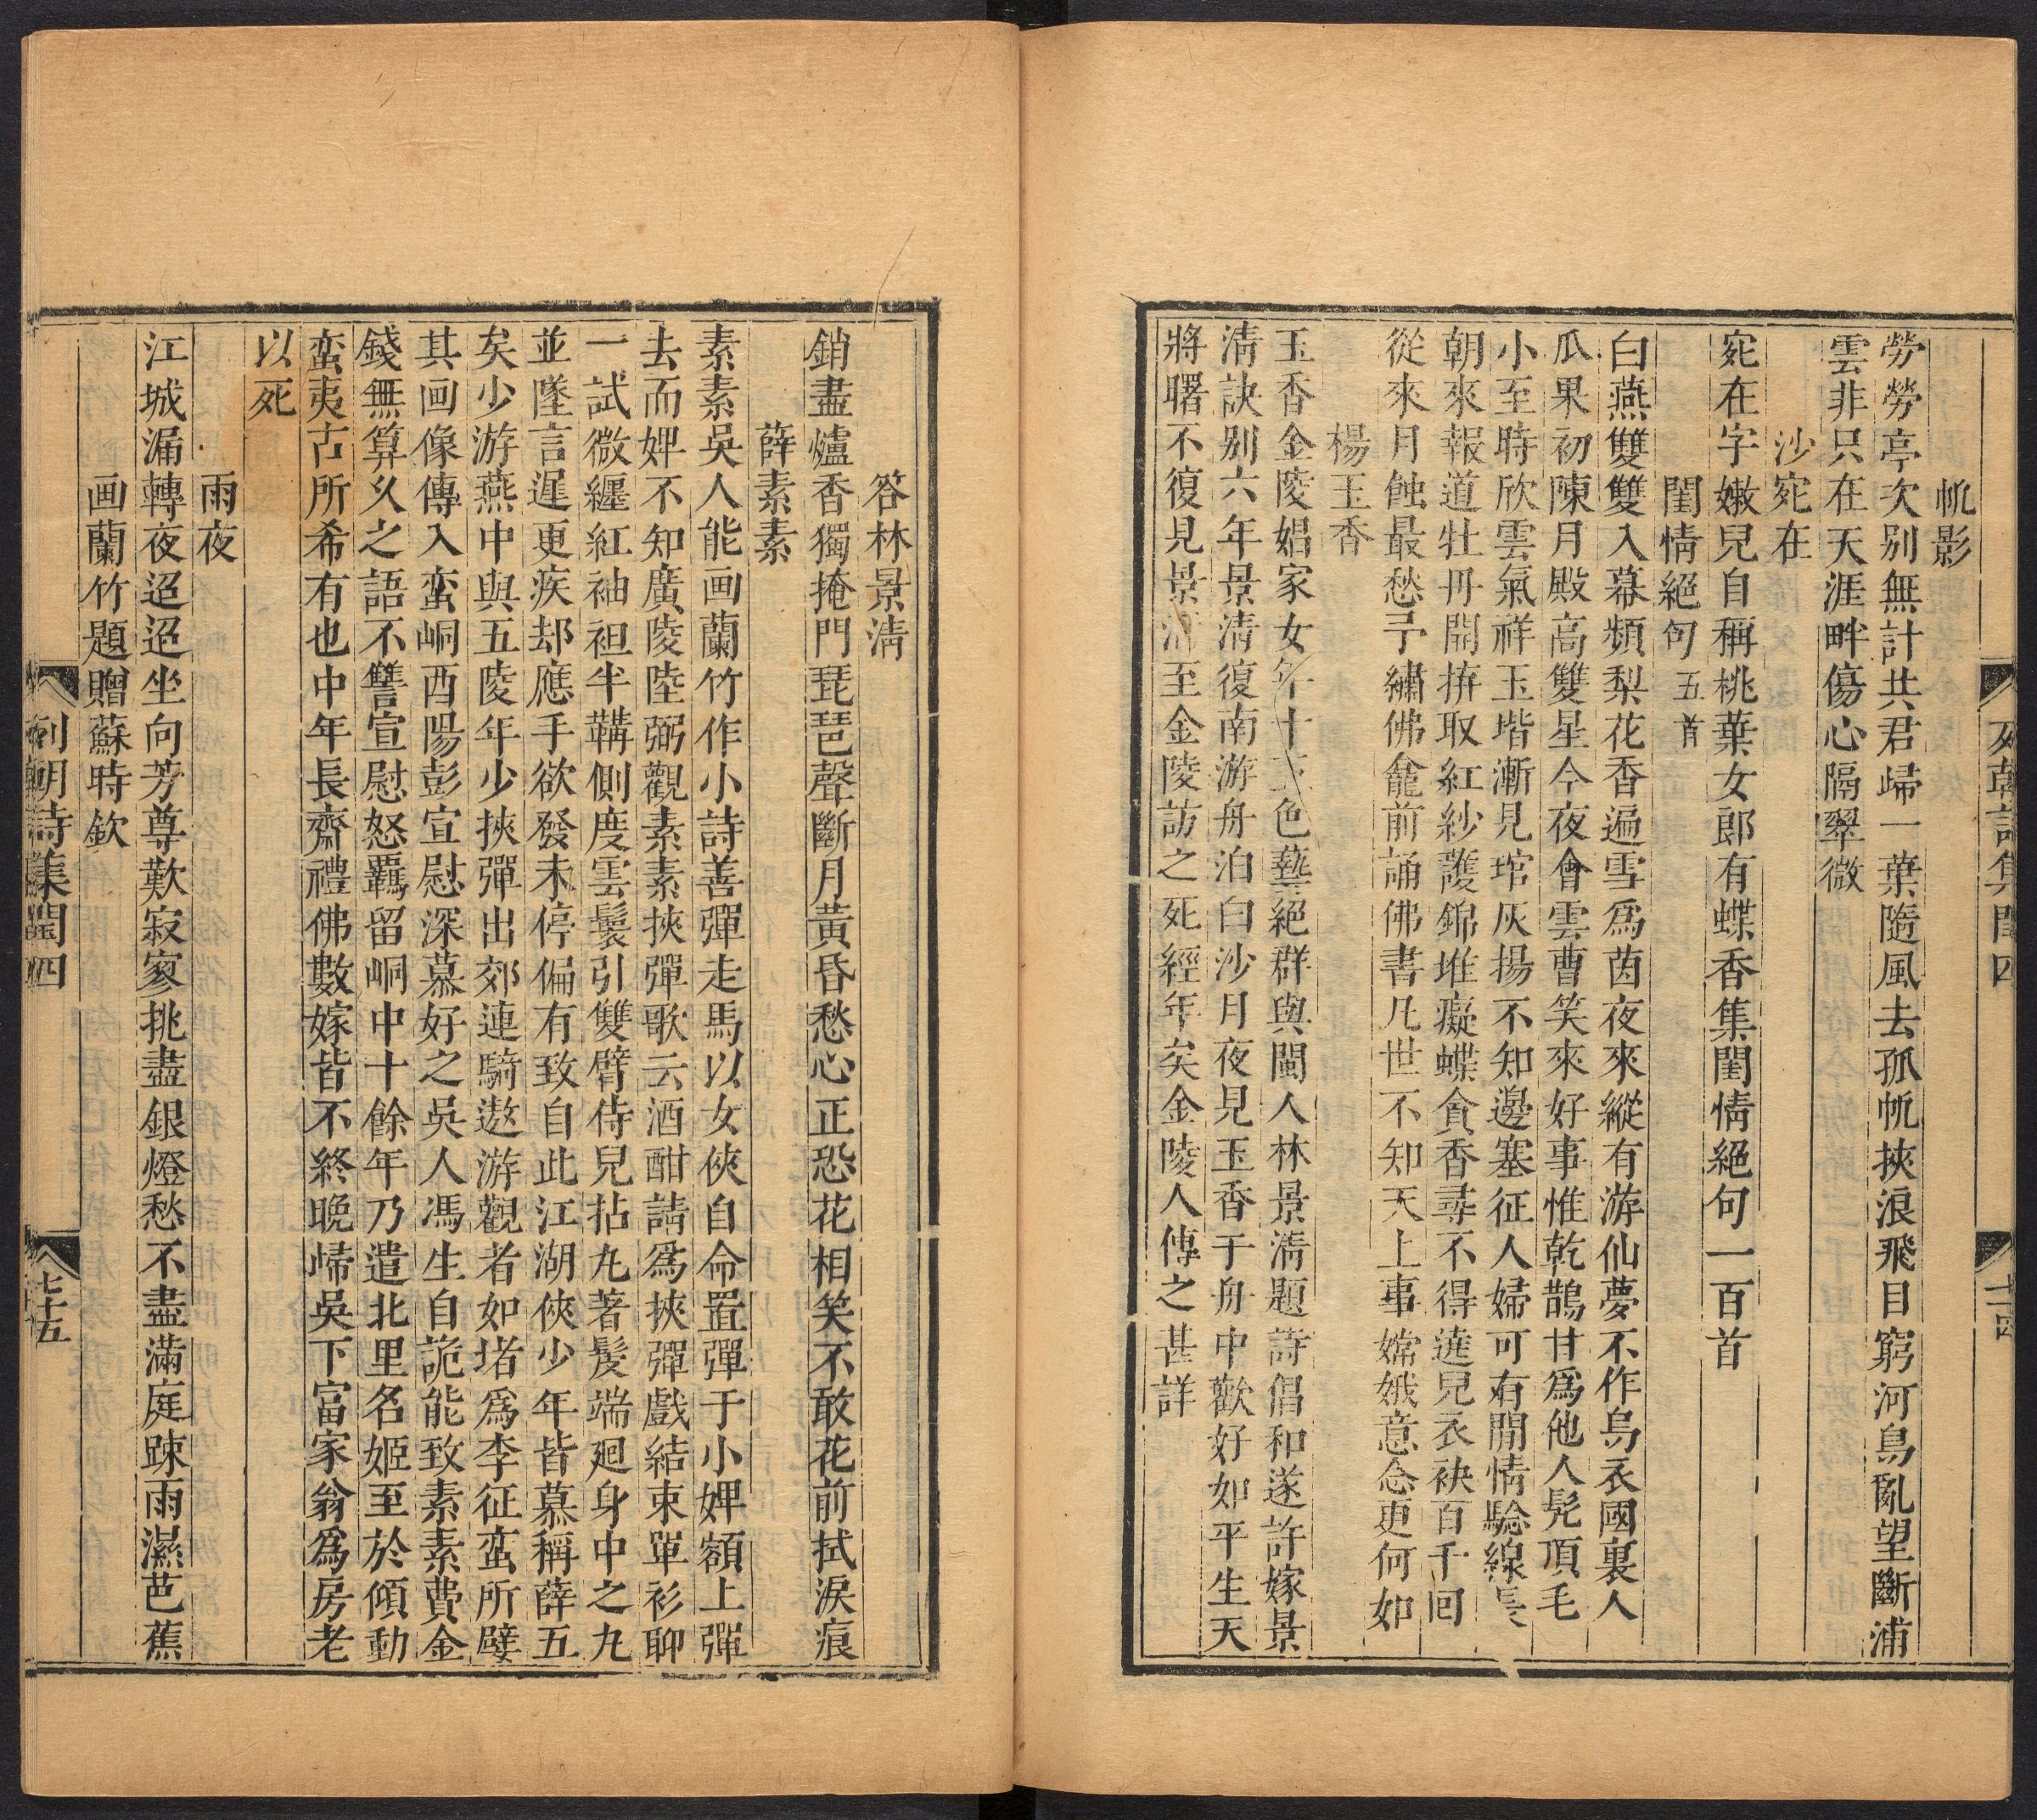 帆影
勞勞亭次別無計共君歸一葉隨風去孤帆挾浪飛目窮河鳥亂望斷浦
雲非只在天涯畔傷心隔翠微
沙宛在
宛在字嫩兒自稱桃葉女郎有蝶香集閨情絕句一百首
閨情絕句五首
白燕雙雙入幕頻梨花香遍雪爲茵夜來縱有游仙夢不作烏衣國裏人
瓜果初陳月殿高雙星今夜會雲曹笑來好事惟乾鵲甘爲他人髡頂毛
小至時欣雲氣祥玉堦漸見琯灰揚不知邊塞征人婦可有閒情騐線長
朝來報道牡丹開擠取紅紗護錦堆癡蝶貪香尋不得遶兒衣袂百千回
從來月蝕最愁予繡佛龕前誦佛書凡世不知天上事嫦娥意念更何如
楊玉香
玉香金陵娼家女年十五色藝絕群與閩人林景淸題詩倡和遂許嫁景
淸訣別六年景淸復南游舟泊白沙月夜見玉香于舟中歡好如平生天
將曙不復見景淸至金陵訪之死經年矣金陵人傳之甚詳
列朝詩集閏四
七十四
答林景淸
銷盡爐香獨掩門琵琶聲斷月黃昏愁心正恐花相笑不敢花前拭淚痕
薛素素
素素吳人能画蘭竹作小詩善彈走馬以女俠自命置彈于小婢額上彈
去而婢不知廣陵陸弼觀素素挾彈歌云酒酣請爲挾彈戲結束單衫聊
一試微纏紅袖袒半韝側度雲鬟引雙臂侍兒拈九著髮端廻身中之九
並墜言遲更疾却應手欲發未停偏有致自此江湖俠少年皆慕稱薛五
矣少游燕中與五陵年少挾彈出郊連騎遨游觀者如堵爲李征蛮所嬖
其画像傳入蛮峒酉陽彭宣慰深慕好之吳人馮生自詭能致素素費金
錢無算久之語不讐宣慰怒羈留峒中十餘年乃遣北里名姬至於傾動
蛮夷古所希有也中年長齋禮佛數嫁皆不終晚歸吳下富家翁爲房老
以死
雨夜
江城漏轉夜迢迢坐向芳尊歎寂寥挑盡銀燈愁不盡滿庭踈雨濕芭蕉
画蘭竹題贈蘇時欽
列朝詩集閏四
七十五